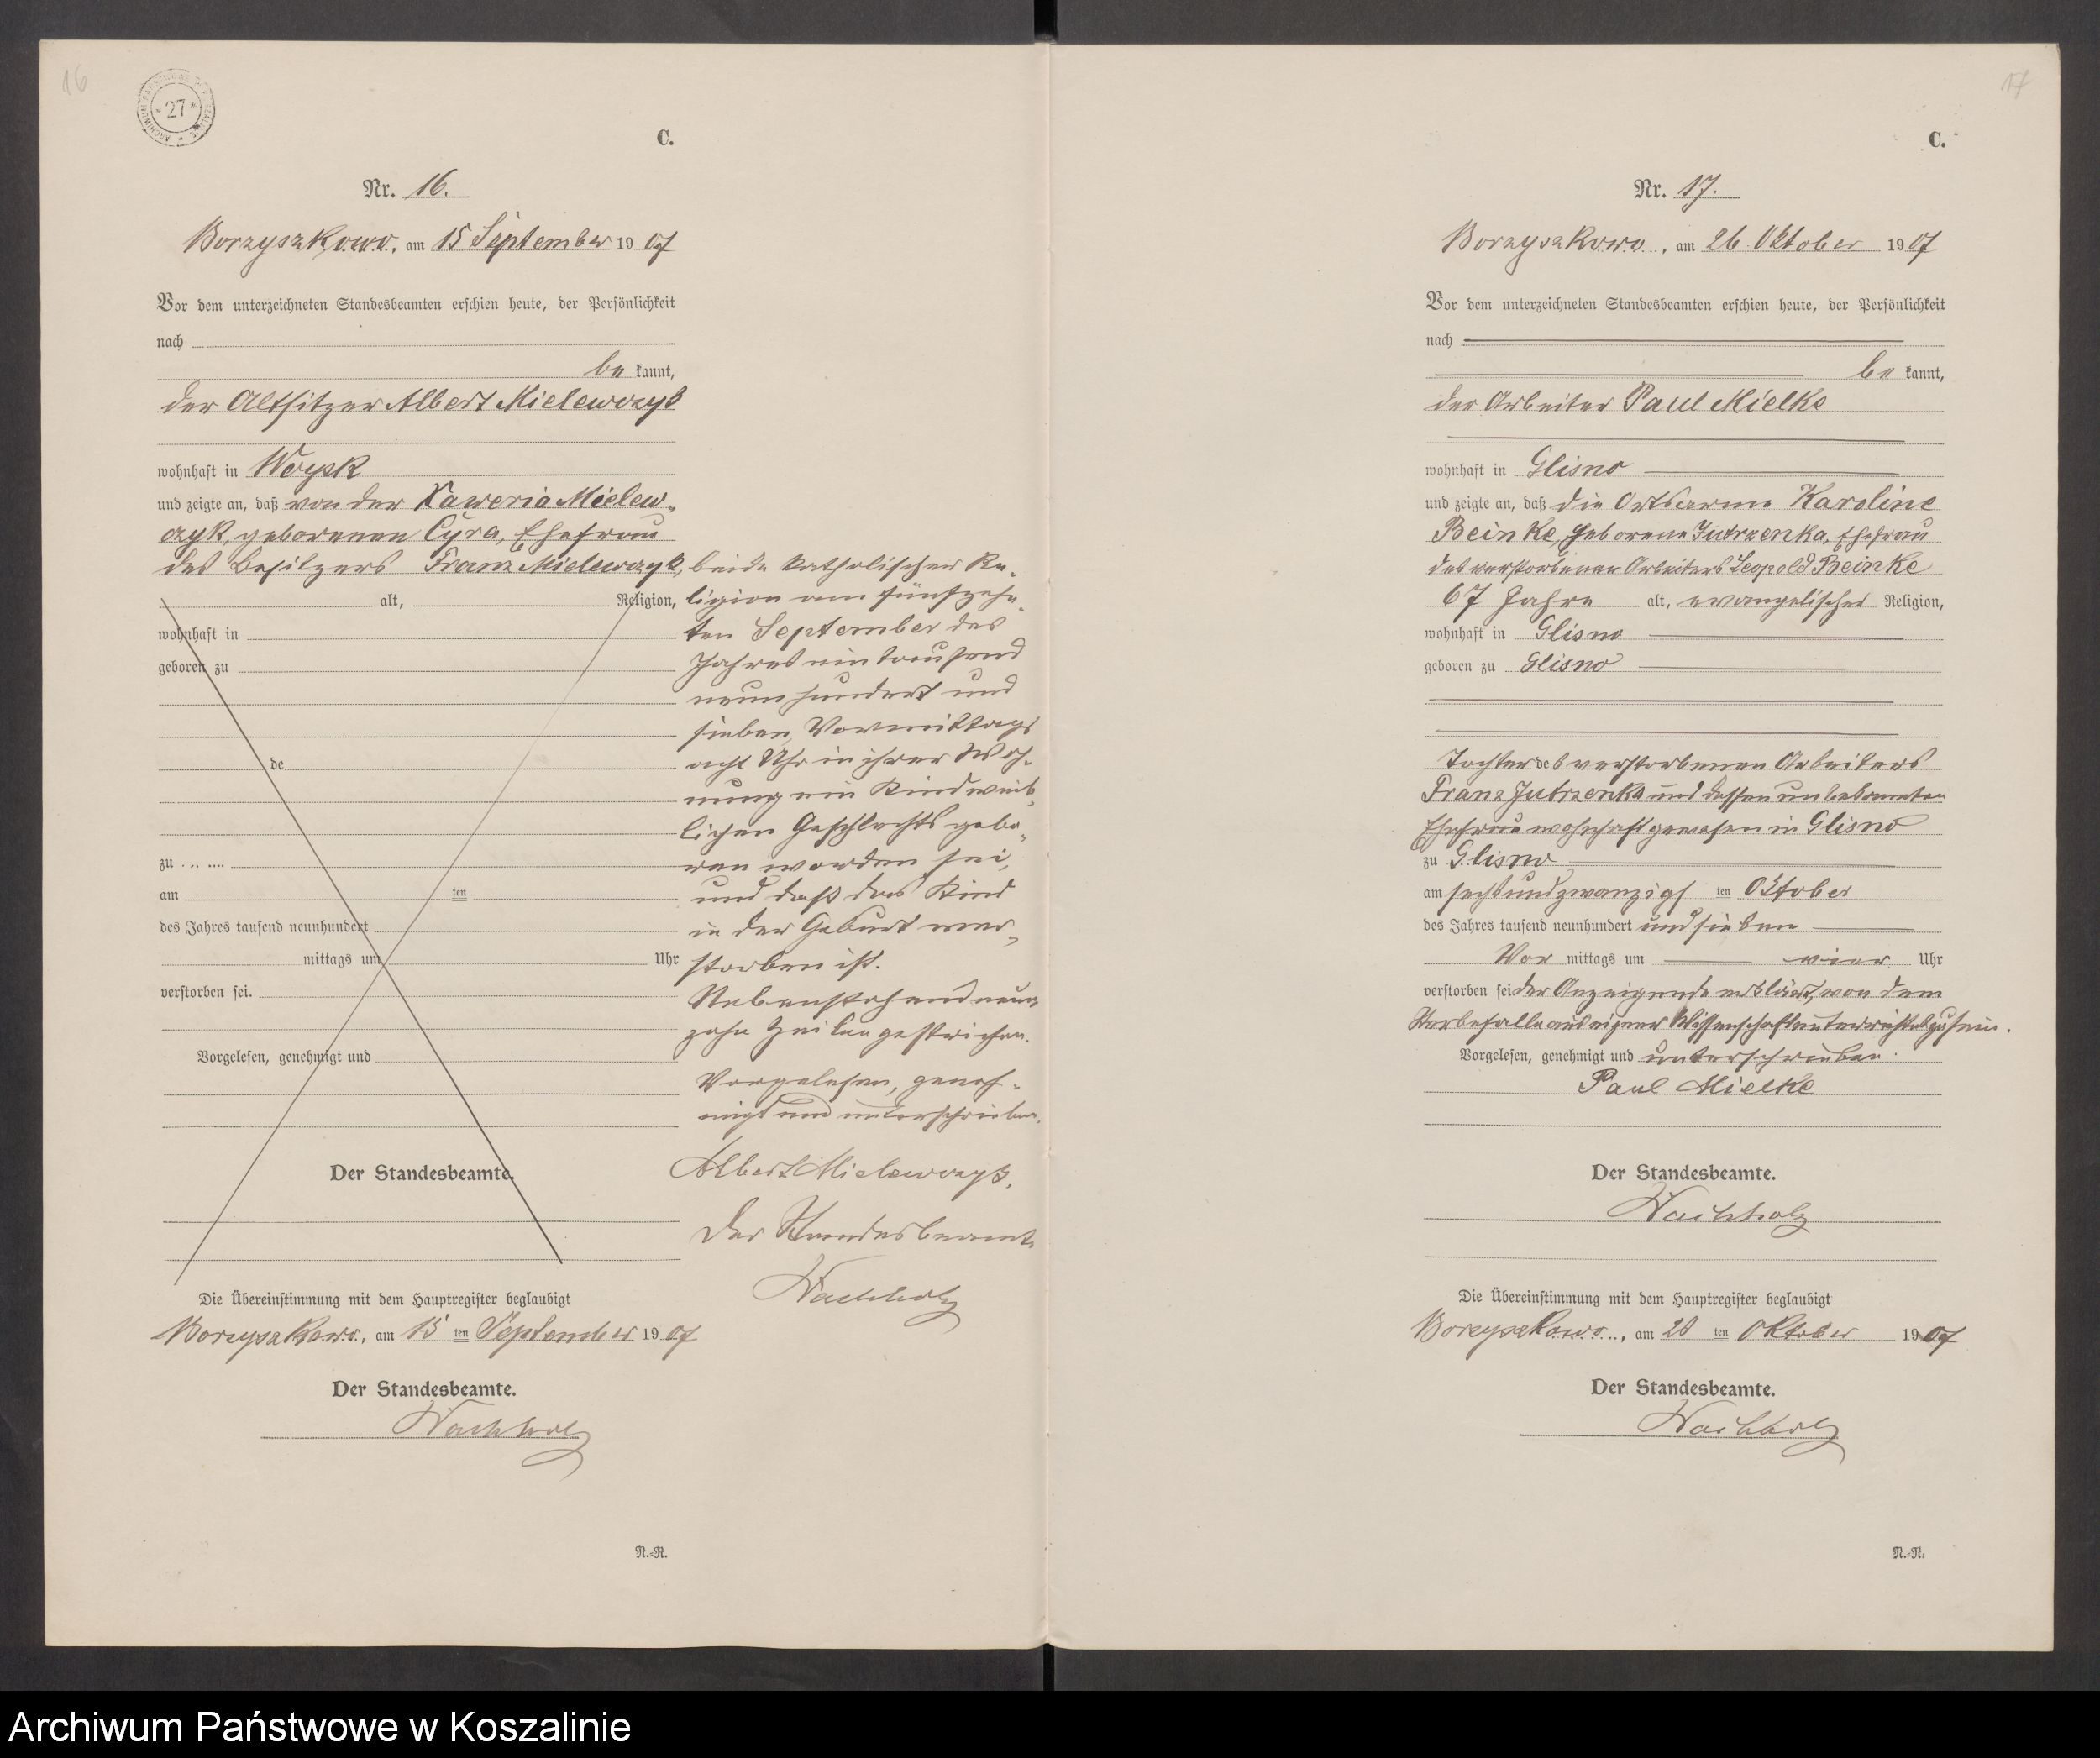 16
ARCHIWUM PAŃSTWOWE W KOSZALINIE
* 27 *
C.
Nr. 16.
Borzyszkowo, am 15 September 1907
Vor dem unterzeichneten Standesbeamten erschien heute, der Persönlichkeit
nach
be kannt,
der Altsitzer Albert Mielewczyk
wohnhaft in Woysk
und zeigte an, daß von der Xaweria Mielew-
czyk, geborenen Cyra, Ehefrau
des Besitzers Franz Mielewczyk, beide katholischer Re-
alt, Religion, ligion am fünfzehn-
wohnhaft in ten September des
geboren zu Jahres eintausend
neunhundert und
sieben, Vormittags
de acht Uhr in ihrer Woh-
nung ein Kind weib-
lichen Geschlechts gebo-
zu ren worden sei,
am ten und daß das Kind
des Jahres tausend neunhundert in der Geburt ver-
mittags um Uhr storben ist.
verstorben sei. Nebenstehend neun-
zehn Zeilen gestrichen.
Vorgelesen, genehmigt und
Vorgelesen, geneh-
migt und unterschrieben.
Der Standesbeamte. Albert Mielewczyk.
Der Standesbeamte
Wachholz
Die Übereinstimmung mit dem Hauptregister beglaubigt
Borzyszkowo, am 15 ten September 1907
Der Standesbeamte.
Wachholz
N.-R.
17
C.
Nr. 17.
Borzyszkowo, am 26 Oktober 1907
Vor dem unterzeichneten Standesbeamten erschien heute, der Persönlichkeit
nach
be kannt,
der Arbeiter Paul Mielke
wohnhaft in Glisno
und zeigte an, daß die Ortsarme Karoline
Beinke, geborene Jutrzenka, Ehefrau
des verstorbenen Arbeiters Leopold Beinke
67 Jahre alt, evangelischer Religion,
wohnhaft in Glisno
geboren zu Glisno
Tochter des verstorbenen Arbeiters
Franz Jutrzenka und dessen unbekannten
Ehefrau wohnhaft gewesen in Glisno
zu Glisno
am sechsundzwanzigs ten Oktober
des Jahres tausend neunhundert und sieben
Vor mittags um vier Uhr
verstorben sei der Anzeigende erklärt, von dem
Sterbefalle aus eigener Wissenschaft unterrichtet zu sein.
Vorgelesen, genehmigt und unterschrieben.
Paul Mielke
Der Standesbeamte.
Wachholz
Die Übereinstimmung mit dem Hauptregister beglaubigt
Borzyszkowo, am 26 ten Oktober 1907
Der Standesbeamte.
Wachholz
N.-R.
Archiwum Państwowe w Koszalinie